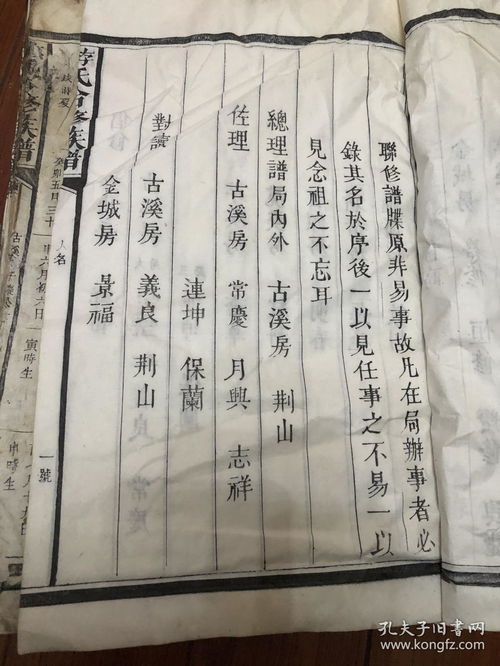 聯修譜牒原非易事故凡在局辦事者必
錄其名於序後一以見任事之不易一以
見念祖之不忘耳
總理譜局內外 古溪房 荆山
佐理 古溪房 常慶 月興 志祥
連坤 保蘭
對讀 古溪房 義良 荆山
金城房 景福
氏合修族譜
人名
一號
癸卯五月三十
六月初六日
寅時生
申時生
孔夫子旧书网
www.kongfz.com